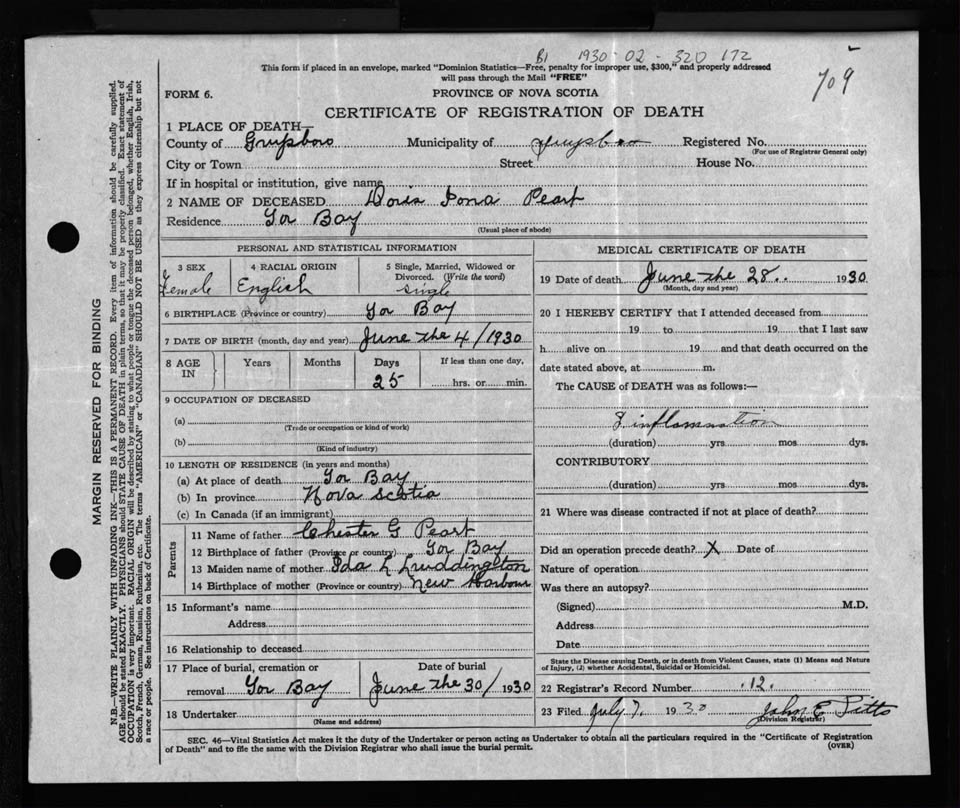 B1 1930-02-320172
This form if placed in an envelope, marked "Dominion Statistics—Free, penalty for improper use, $300," and properly addressed
will pass through the Mail "FREE"
709
FORM 6.
PROVINCE OF NOVA SCOTIA
CERTIFICATE OF REGISTRATION OF DEATH
1 PLACE OF DEATH—
County of Guysboro Municipality of Guysboro Registered No.
(For use of Registrar General only)
City or Town Street House No.
If in hospital or institution, give name
2 NAME OF DECEASED Doris Iona Peart
Residence Tor Bay
(Usual place of abode)
PERSONAL AND STATISTICAL INFORMATION
3 SEX
Female
4 RACIAL ORIGIN
English
5 Single, Married, Widowed or
Divorced. (Write the word)
single
6 BIRTHPLACE (Province or country) Tor Bay
7 DATE OF BIRTH (month, day and year) June the 4/1930
8 AGE IN Years Months Days If less than one day,
25 hrs. or min.
9 OCCUPATION OF DECEASED
(a)
(Trade or occupation or kind of work)
(b)
(Kind of industry)
10 LENGTH OF RESIDENCE (in years and months)
(a) At place of death Tor Bay
(b) In province Nova Scotia
(c) In Canada (if an immigrant)
Parents
11 Name of father Chester G Peart
12 Birthplace of father (Province or country) Tor Bay
13 Maiden name of mother Ida L Luddington
14 Birthplace of mother (Province or country) New Harbour
15 Informant's name
Address
16 Relationship to deceased
17 Place of burial, cremation or
removal Tor Bay
Date of burial
June the 30/1930
18 Undertaker
(Name and address)
MEDICAL CERTIFICATE OF DEATH
19 Date of death June the 28 1930
(Month, day and year)
20 I HEREBY CERTIFY that I attended deceased from
19 to 19 that I last saw
h alive on 19 and that death occurred on the
date stated above, at m.
The CAUSE of DEATH was as follows:—
inflamnation
(duration) yrs mos dys.
CONTRIBUTORY
(duration) yrs. mos. dys.
21 Where was disease contracted if not at place of death?
Did an operation precede death? X Date of
Nature of operation
Was there an autopsy?
(Signed) M.D.
Address
Date
State the Disease causing Death, or in death from Violent Causes, state (1) Means and Nature
of Injury, (2) whether Accidental, Suicidal or Homicidal.
22 Registrar's Record Number 12.
23 Filed July 7, 1930 John E Pitts
(Division Registrar)
SEC. 46—Vital Statistics Act makes it the duty of the Undertaker or person acting as Undertaker to obtain all the particulars required in the "Certificate of Registration
of Death" and to file the same with the Division Registrar who shall issue the burial permit.
(OVER)
MARGIN RESERVED FOR BINDING
N.B.—WRITE PLAINLY WITH UNFADING INK—THIS IS A PERMANENT RECORD. Every item of information should be carefully supplied.
AGE should be stated EXACTLY. PHYSICIANS should STATE CAUSE OF DEATH in plain terms, so that it may be properly classified. Exact statement of
OCCUPATION is very important. RACIAL ORIGIN will be described by stating to what people or tongue the deceased person belonged, whether English, Irish,
Scotch, French, German, Russian, Ruthenian, etc. The terms "AMERICAN" or "CANADIAN" SHOULD NOT BE USED as they express citizenship but not
a race or people. See instructions on back of Certificate.